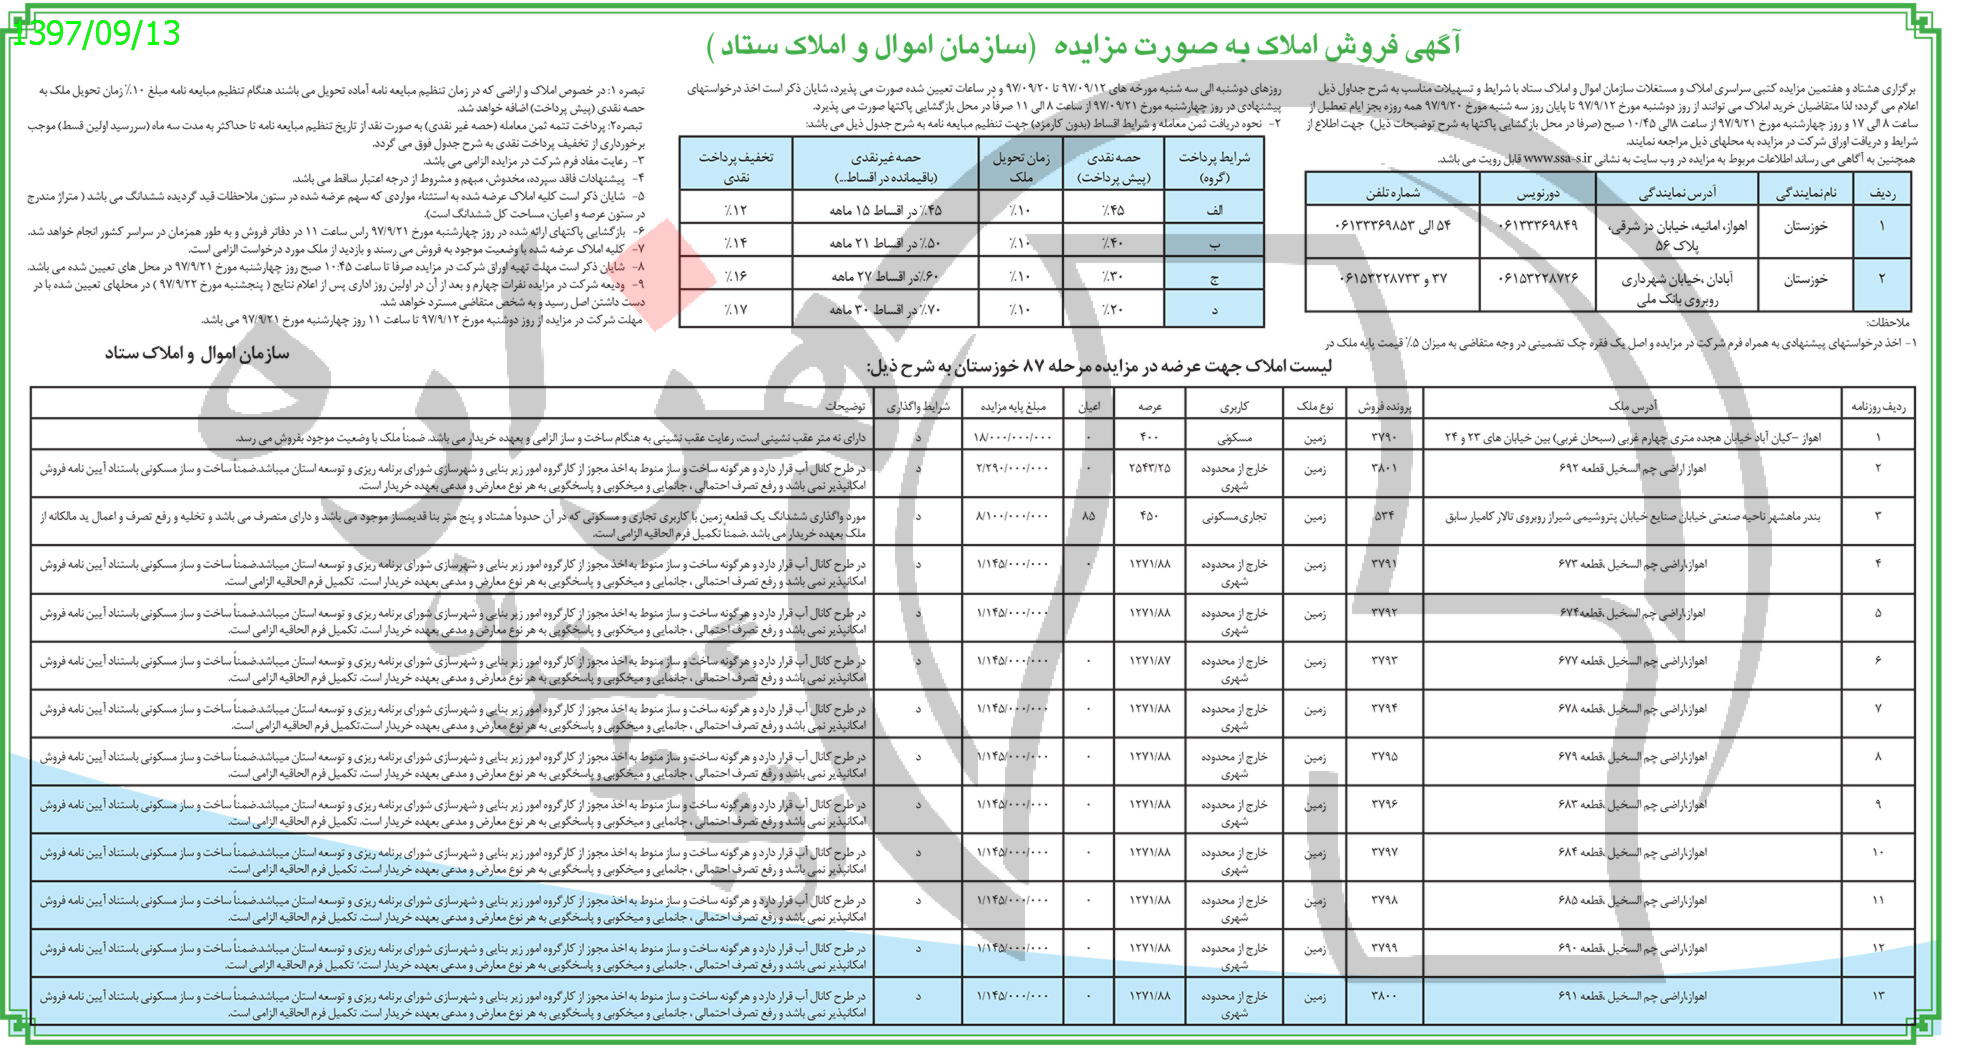 1397/09/13
آگهی فروش املاک به صورت مزایده (سازمان اموال و املاک ستاد)
برگزاری هشتاد و هفتمین مزایده کتبی سراسری املاک و مستغلات سازمان اموال و املاک ستاد با شرایط و تسهیلات مناسب به شرح جداول ذیل
اعلام می گردد؛ لذا متقاضیان خرید املاک می توانند از روز دوشنبه مورخ ۹۷/۹/۱۲ تا پایان روز سه شنبه مورخ ۹۷/۹/۲۰ همه روزه بجز ایام تعطیل از
ساعت ۸ الی ۱۷ و روز چهارشنبه مورخ ۹۷/۹/۲۱ از ساعت ۸الی ۱۰/۴۵ صبح (صرفا در محل بازگشایی پاکتها به شرح توضیحات ذیل) جهت اطلاع از
شرایط و دریافت اوراق شرکت در مزایده به محلهای ذیل مراجعه نمایند.
همچنین به آگاهی می رساند اطلاعات مربوط به مزایده در وب سایت به نشانی www.ssa-s.ir قابل رویت می باشد.
ردیف نام نمایندگی آدرس نمایندگی دورنویس شماره تلفن
۱ خوزستان اهواز، امانیه، خیابان دز شرقی، پلاک ۵۶ ۰۶۱۳۳۳۶۹۸۴۹ ۵۴ الی ۰۶۱۳۳۳۶۹۸۵۳
۲ خوزستان آبادان ،خیابان شهرداری روبروی بانک ملی ۰۶۱۵۳۲۲۸۷۲۶ ۳۷ و ۰۶۱۵۳۲۲۸۷۳۳
ملاحظات:
۱- اخذ درخواستهای پیشنهادی به همراه فرم شرکت در مزایده و اصل یک فقره چک تضمینی در وجه متقاضی به میزان ۵٪ قیمت پایه ملک در
روزهای دوشنبه الی سه شنبه مورخه های ۹۷/۰۹/۱۲ تا ۹۷/۰۹/۲۰ و در ساعات تعیین شده صورت می پذیرد، شایان ذکر است اخذ درخواستهای
پیشنهادی در روز چهارشنبه مورخ ۹۷/۰۹/۲۱ از ساعت ۸ الی ۱۱ صرفا در محل بازگشایی پاکتها صورت می پذیرد.
۲- نحوه دریافت ثمن معامله و شرایط اقساط (بدون کارمزد) جهت تنظیم مبایعه نامه به شرح جدول ذیل می باشد:
شرایط پرداخت (گروه) حصه نقدی (پیش پرداخت) زمان تحویل ملک حصه غیر نقدی (باقیمانده در اقساط...) تخفیف پرداخت نقدی
الف ۴۵٪ ۱۰٪ ۴۵٪ در اقساط ۱۵ ماهه ۱۲٪
ب ۴۰٪ ۱۰٪ ۵۰٪ در اقساط ۲۱ ماهه ۱۴٪
ج ۳۰٪ ۱۰٪ ۶۰٪در اقساط ۲۷ ماهه ۱۶٪
د ۲۰٪ ۱۰٪ ۷۰٪ در اقساط ۳۰ ماهه ۱۷٪
تبصره ۱: در خصوص املاک و اراضی که در زمان تنظیم مبایعه نامه آماده تحویل می باشند هنگام تنظیم مبایعه نامه مبلغ ۱۰٪ زمان تحویل ملک به
حصه نقدی (پیش پرداخت) اضافه خواهد شد.
تبصره۲: پرداخت تتمه ثمن معامله (حصه غیر نقدی) به صورت نقد از تاریخ تنظیم مبایعه نامه تا حداکثر به مدت سه ماه (سررسید اولین قسط) موجب
برخورداری از تخفیف پرداخت نقدی به شرح جدول فوق می گردد.
۳- رعایت مفاد فرم شرکت در مزایده الزامی می باشد.
۴- پیشنهادات فاقد سپرده، مخدوش، مبهم و مشروط از درجه اعتبار ساقط می باشد.
۵- شایان ذکر است کلیه املاک عرضه شده به استثناء مواردی که سهم عرضه شده در ستون ملاحظات قید گردیده ششدانگ می باشد ( متراژ مندرج
در ستون عرصه و اعیان، مساحت کل ششدانگ است).
۶- بازگشایی پاکتهای ارائه شده در روز چهارشنبه مورخ ۹۷/۹/۲۱ راس ساعت ۱۱ در دفاتر فروش و به طور همزمان در سراسر کشور انجام خواهد شد.
۷- کلیه املاک عرضه شده با وضعیت موجود به فروش می رسند و بازدید از ملک مورد درخواست الزامی است.
۸- شایان ذکر است مهلت تهیه اوراق شرکت در مزایده صرفا تا ساعت ۱۰:۴۵ صبح روز چهارشنبه مورخ ۹۷/۹/۲۱ در محل های تعیین شده می باشد.
۹- ودیعه شرکت در مزایده نفرات چهارم و بعد از آن در اولین روز اداری پس از اعلام نتایج ( پنجشنبه مورخ ۹۷/۹/۲۲ ) در محلهای تعیین شده با در
دست داشتن اصل رسید و به شخص متقاضی مسترد خواهد شد.
مهلت شرکت در مزایده از روز دوشنبه مورخ ۹۷/۹/۱۲ تا ساعت ۱۱ روز چهارشنبه مورخ ۹۷/۹/۲۱ می باشد.
سازمان اموال و املاک ستاد
لیست املاک جهت عرضه در مزایده مرحله ۸۷ خوزستان به شرح ذیل:
ردیف روزنامه آدرس ملک پرونده فروش نوع ملک کاربری عرصه اعیان مبلغ پایه مزایده شرایط واگذاری توضیحات
۱ اهواز –کیان آباد خیابان هجده متری چهارم غربی (سبحان غربی) بین خیابان های ۲۳ و ۲۴ ۳۷۹۰ زمین مسکونی ۴۰۰ ۰ ۱۸/۰۰۰/۰۰۰/۰۰۰ د دارای نه متر عقب نشینی است، رعایت عقب نشینی به هنگام ساخت و ساز الزامی و بعهده خریدار می باشد. ضمناً ملک با وضعیت موجود بفروش می رسد.
۲ اهواز اراضی چم السخیل قطعه ۶۹۲ ۳۸۰۱ زمین خارج از محدوده شهری ۲۵۴۳/۲۵ ۰ ۲/۲۹۰/۰۰۰/۰۰۰ د در طرح کانال آب قرار دارد و هرگونه ساخت و ساز منوط به اخذ مجوز از کارگروه امور زیر بنایی و شهرسازی شورای برنامه ریزی و توسعه استان میباشد.ضمناً ساخت و ساز مسکونی باستناد آیین نامه فروش
امکانپذیر نمی باشد و رفع تصرف احتمالی ، جانمایی و میخکوبی و پاسخگویی به هر نوع معارض و مدعی بعهده خریدار است.
۳ بندر ماهشهر ناحیه صنعتی خیابان صنایع خیابان پتروشیمی شیراز روبروی تالار کامیار سابق ۵۳۴ زمین تجاری‌مسکونی ۴۵۰ ۸۵ ۸/۱۰۰/۰۰۰/۰۰۰ د مورد واگذاری ششدانگ یک قطعه زمین با کاربری تجاری و مسکونی که در آن حدوداً هشتاد و پنج متر بنا قدیمساز موجود می باشد و دارای متصرف می باشد و تخلیه و رفع تصرف و اعمال ید مالکانه از
ملک بعهده خریدار می باشد .ضمناً تکمیل فرم الحاقیه الزامی است.
۴ اهواز،اراضی چم السخیل ،قطعه ۶۷۳ ۳۷۹۱ زمین خارج از محدوده شهری ۱۲۷۱/۸۸ ۰ ۱/۱۴۵/۰۰۰/۰۰۰ د در طرح کانال آب قرار دارد و هرگونه ساخت و ساز منوط به اخذ مجوز از کارگروه امور زیر بنایی و شهرسازی شورای برنامه ریزی و توسعه استان میباشد.ضمناً ساخت و ساز مسکونی باستناد آیین نامه فروش
امکانپذیر نمی باشد و رفع تصرف احتمالی ، جانمایی و میخکوبی و پاسخگویی به هر نوع معارض و مدعی بعهده خریدار است. تکمیل فرم الحاقیه الزامی است.
۵ اهواز،اراضی چم السخیل ،قطعه۶۷۴ ۳۷۹۲ زمین خارج از محدوده شهری ۱۲۷۱/۸۸ ۰ ۱/۱۴۵/۰۰۰/۰۰۰ د در طرح کانال آب قرار دارد و هرگونه ساخت و ساز منوط به اخذ مجوز از کارگروه امور زیر بنایی و شهرسازی شورای برنامه ریزی و توسعه استان میباشد.ضمناً ساخت و ساز مسکونی باستناد آیین نامه فروش
امکانپذیر نمی باشد و رفع تصرف احتمالی ، جانمایی و میخکوبی و پاسخگویی به هر نوع معارض و مدعی بعهده خریدار است. تکمیل فرم الحاقیه الزامی است.
۶ اهواز،اراضی چم السخیل ،قطعه ۶۷۷ ۳۷۹۳ زمین خارج از محدوده شهری ۱۲۷۱/۸۷ ۰ ۱/۱۴۵/۰۰۰/۰۰۰ د در طرح کانال آب قرار دارد و هرگونه ساخت و ساز منوط به اخذ مجوز از کارگروه امور زیر بنایی و شهرسازی شورای برنامه ریزی و توسعه استان میباشد.ضمناً ساخت و ساز مسکونی باستناد آیین نامه فروش
امکانپذیر نمی باشد و رفع تصرف احتمالی ، جانمایی و میخکوبی و پاسخگویی به هر نوع معارض و مدعی بعهده خریدار است. تکمیل فرم الحاقیه الزامی است.
۷ اهواز،اراضی چم السخیل ،قطعه ۶۷۸ ۳۷۹۴ زمین خارج از محدوده شهری ۱۲۷۱/۸۸ ۰ ۱/۱۴۵/۰۰۰/۰۰۰ د در طرح کانال آب قرار دارد و هرگونه ساخت و ساز منوط به اخذ مجوز از کارگروه امور زیر بنایی و شهرسازی شورای برنامه ریزی و توسعه استان میباشد.ضمناً ساخت و ساز مسکونی باستناد آیین نامه فروش
امکانپذیر نمی باشد و رفع تصرف احتمالی ، جانمایی و میخکوبی و پاسخگویی به هر نوع معارض و مدعی بعهده خریدار است.تکمیل فرم الحاقیه الزامی است.
۸ اهواز،اراضی چم السخیل ،قطعه ۶۷۹ ۳۷۹۵ زمین خارج از محدوده شهری ۱۲۷۱/۸۸ ۰ ۱/۱۴۵/۰۰۰/۰۰۰ د در طرح کانال آب قرار دارد و هرگونه ساخت و ساز منوط به اخذ مجوز از کارگروه امور زیر بنایی و شهرسازی شورای برنامه ریزی و توسعه استان میباشد.ضمناً ساخت و ساز مسکونی باستناد آیین نامه فروش
امکانپذیر نمی باشد و رفع تصرف احتمالی ، جانمایی و میخکوبی و پاسخگویی به هر نوع معارض و مدعی بعهده خریدار است. تکمیل فرم الحاقیه الزامی است.
۹ اهواز،اراضی چم السخیل ،قطعه ۶۸۳ ۳۷۹۶ زمین خارج از محدوده شهری ۱۲۷۱/۸۸ ۰ ۱/۱۴۵/۰۰۰/۰۰۰ د در طرح کانال آب قرار دارد و هرگونه ساخت و ساز منوط به اخذ مجوز از کارگروه امور زیر بنایی و شهرسازی شورای برنامه ریزی و توسعه استان میباشد.ضمناً ساخت و ساز مسکونی باستناد آیین نامه فروش
امکانپذیر نمی باشد و رفع تصرف احتمالی ، جانمایی و میخکوبی و پاسخگویی به هر نوع معارض و مدعی بعهده خریدار است. تکمیل فرم الحاقیه الزامی است.
۱۰ اهواز،اراضی چم السخیل ،قطعه ۶۸۴ ۳۷۹۷ زمین خارج از محدوده شهری ۱۲۷۱/۸۸ ۰ ۱/۱۴۵/۰۰۰/۰۰۰ د در طرح کانال آب قرار دارد و هرگونه ساخت و ساز منوط به اخذ مجوز از کارگروه امور زیر بنایی و شهرسازی شورای برنامه ریزی و توسعه استان میباشد.ضمناً ساخت و ساز مسکونی باستناد آیین نامه فروش
امکانپذیر نمی باشد و رفع تصرف احتمالی ، جانمایی و میخکوبی و پاسخگویی به هر نوع معارض و مدعی بعهده خریدار است. تکمیل فرم الحاقیه الزامی است.
۱۱ اهواز،اراضی چم السخیل ،قطعه ۶۸۵ ۳۷۹۸ زمین خارج از محدوده شهری ۱۲۷۱/۸۸ ۰ ۱/۱۴۵/۰۰۰/۰۰۰ د در طرح کانال آب قرار دارد و هرگونه ساخت و ساز منوط به اخذ مجوز از کارگروه امور زیر بنایی و شهرسازی شورای برنامه ریزی و توسعه استان میباشد.ضمناً ساخت و ساز مسکونی باستناد آیین نامه فروش
امکانپذیر نمی باشد و رفع تصرف احتمالی ، جانمایی و میخکوبی و پاسخگویی به هر نوع معارض و مدعی بعهده خریدار است. تکمیل فرم الحاقیه الزامی است.
۱۲ اهواز،اراضی چم السخیل ،قطعه ۶۹۰ ۳۷۹۹ زمین خارج از محدوده شهری ۱۲۷۱/۸۸ ۰ ۱/۱۴۵/۰۰۰/۰۰۰ د در طرح کانال آب قرار دارد و هرگونه ساخت و ساز منوط به اخذ مجوز از کارگروه امور زیر بنایی و شهرسازی شورای برنامه ریزی و توسعه استان میباشد.ضمناً ساخت و ساز مسکونی باستناد آیین نامه فروش
امکانپذیر نمی باشد و رفع تصرف احتمالی ، جانمایی و میخکوبی و پاسخگویی به هر نوع معارض و مدعی بعهده خریدار است. تکمیل فرم الحاقیه الزامی است.
۱۳ اهواز،اراضی چم السخیل ،قطعه ۶۹۱ ۳۸۰۰ زمین خارج از محدوده شهری ۱۲۷۱/۸۸ ۰ ۱/۱۴۵/۰۰۰/۰۰۰ د در طرح کانال آب قرار دارد و هرگونه ساخت و ساز منوط به اخذ مجوز از کارگروه امور زیر بنایی و شهرسازی شورای برنامه ریزی و توسعه استان میباشد.ضمناً ساخت و ساز مسکونی باستناد آیین نامه فروش
امکانپذیر نمی باشد و رفع تصرف احتمالی ، جانمایی و میخکوبی و پاسخگویی به هر نوع معارض و مدعی بعهده خریدار است. تکمیل فرم الحاقیه الزامی است.